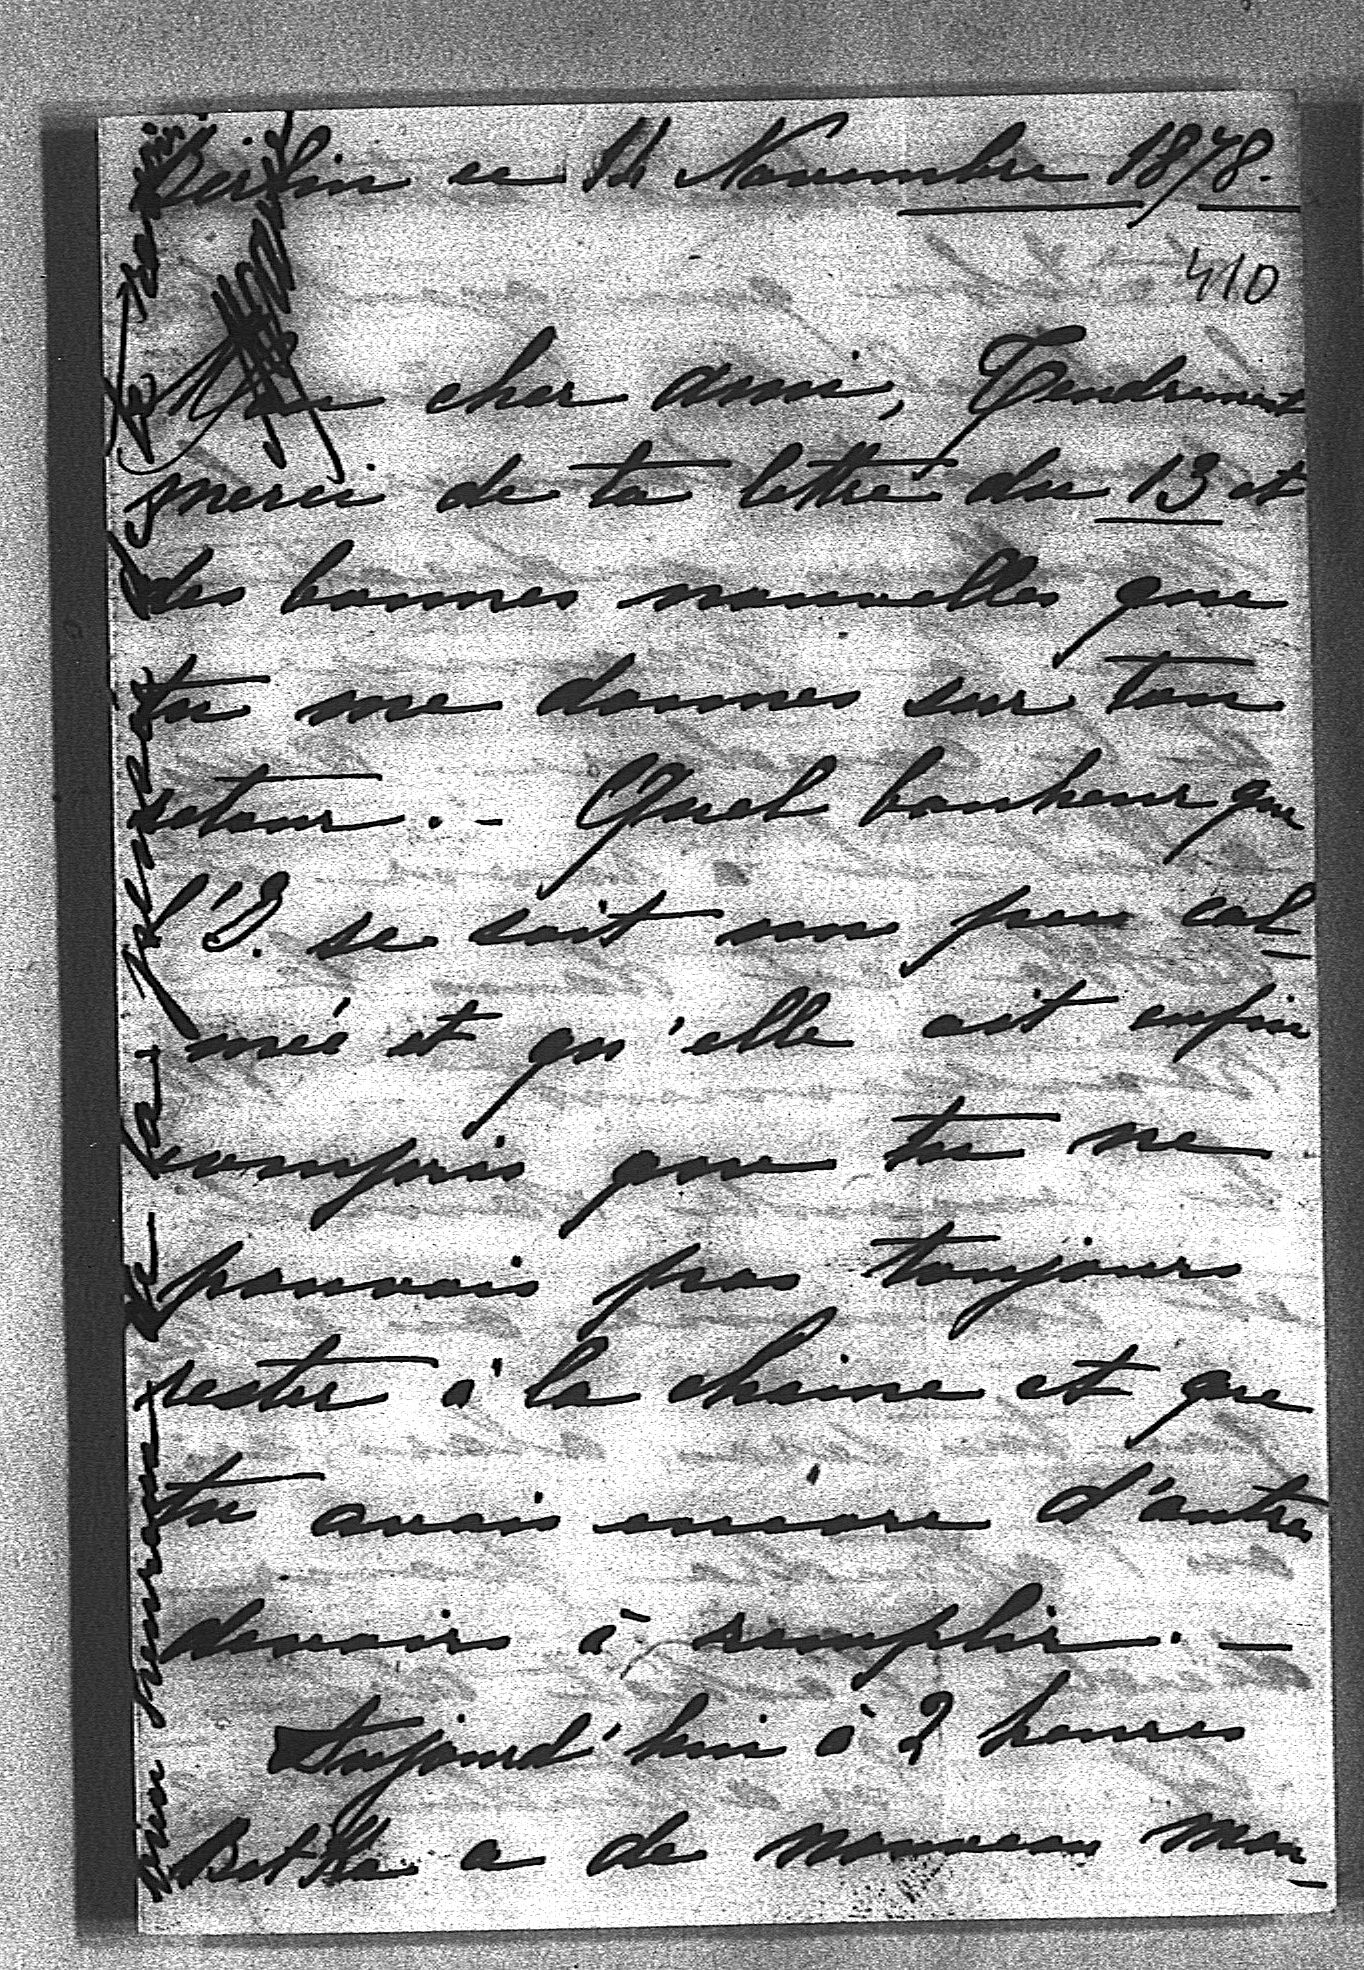 Berlin ce 14 Novembre 1878.
410
Mon cher ami, Tendrement
merci de ta lettre du 13 et
des bonnes nouvelles que
tu me donnes sur ton
retour. – Quel bonheur que
l'I. se soit un peu cal-
mée et qu'elle ait enfin
compris que tu ne
pouvais pas toujours
rester à la chaine et que
tu avais encore d'autres
devoirs à remplir. –
Aujourd'hui à 2 heures
Betka a de nouveau mon-